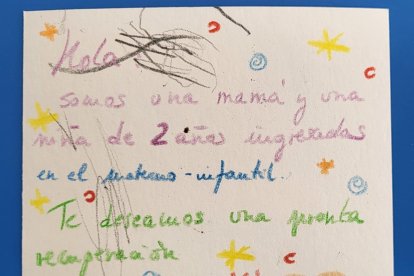 Hola
somos una mamá y una
niña de 2 años ingresadas
en el materno-infantil.
Te deseamos una pronta
recuperación